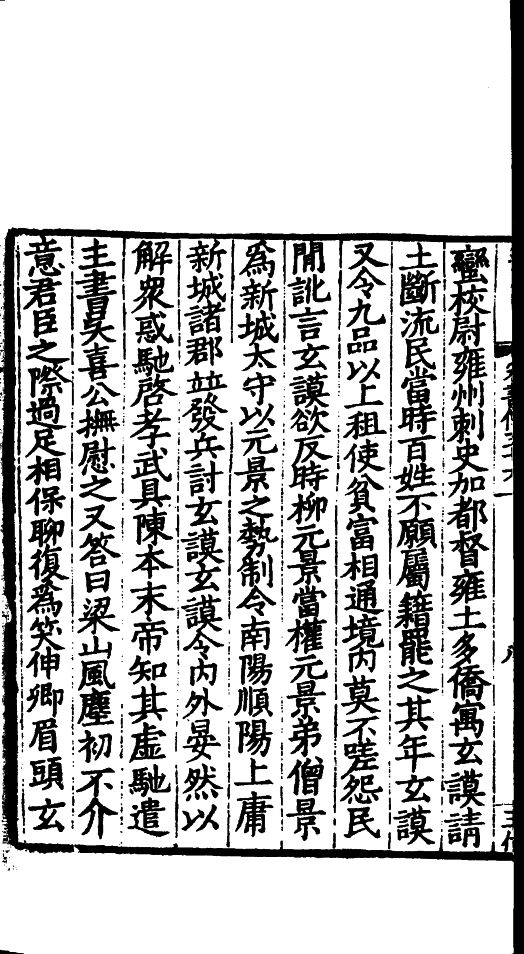 蠻校尉雍州刺史加都督雍土多僑寓玄謨請
土斷流民當時百姓不願屬籍罷之其年玄謨
又令九品以上租使貧富相通境内莫不嗟怨民
間訛言玄謨欲反時柳元景當權元景弟僧景
爲新城太守以元景之勢制令南陽順陽上庸
新城諸郡並發兵討玄謨玄謨令内外晏然以
解衆惑馳啓孝武具陳本末帝知其虛馳遣
主書吴喜公撫慰之又答曰梁山風塵初不介
意君臣之際過足相保聊復爲笑伸卿眉頭玄